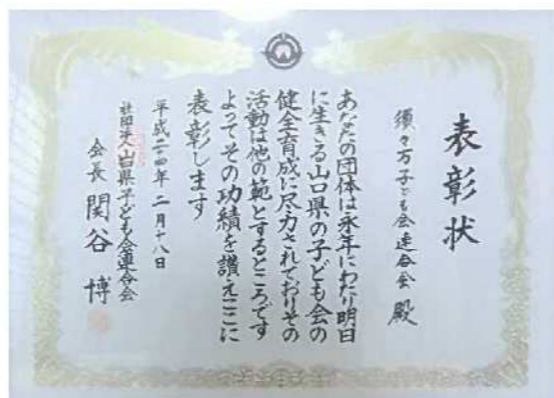 表彰状
須々万子ども会連合会 殿
あなたの団体は永年にわたり明日
に生きる山口県の子ども会の
健全育成に尽力されておりその
活動は他の範とするところです
よってその功績を讃えここに
表彰します
平成二十四年二月十八日
社団法人山口県子ども会連合会
会長 関谷 博